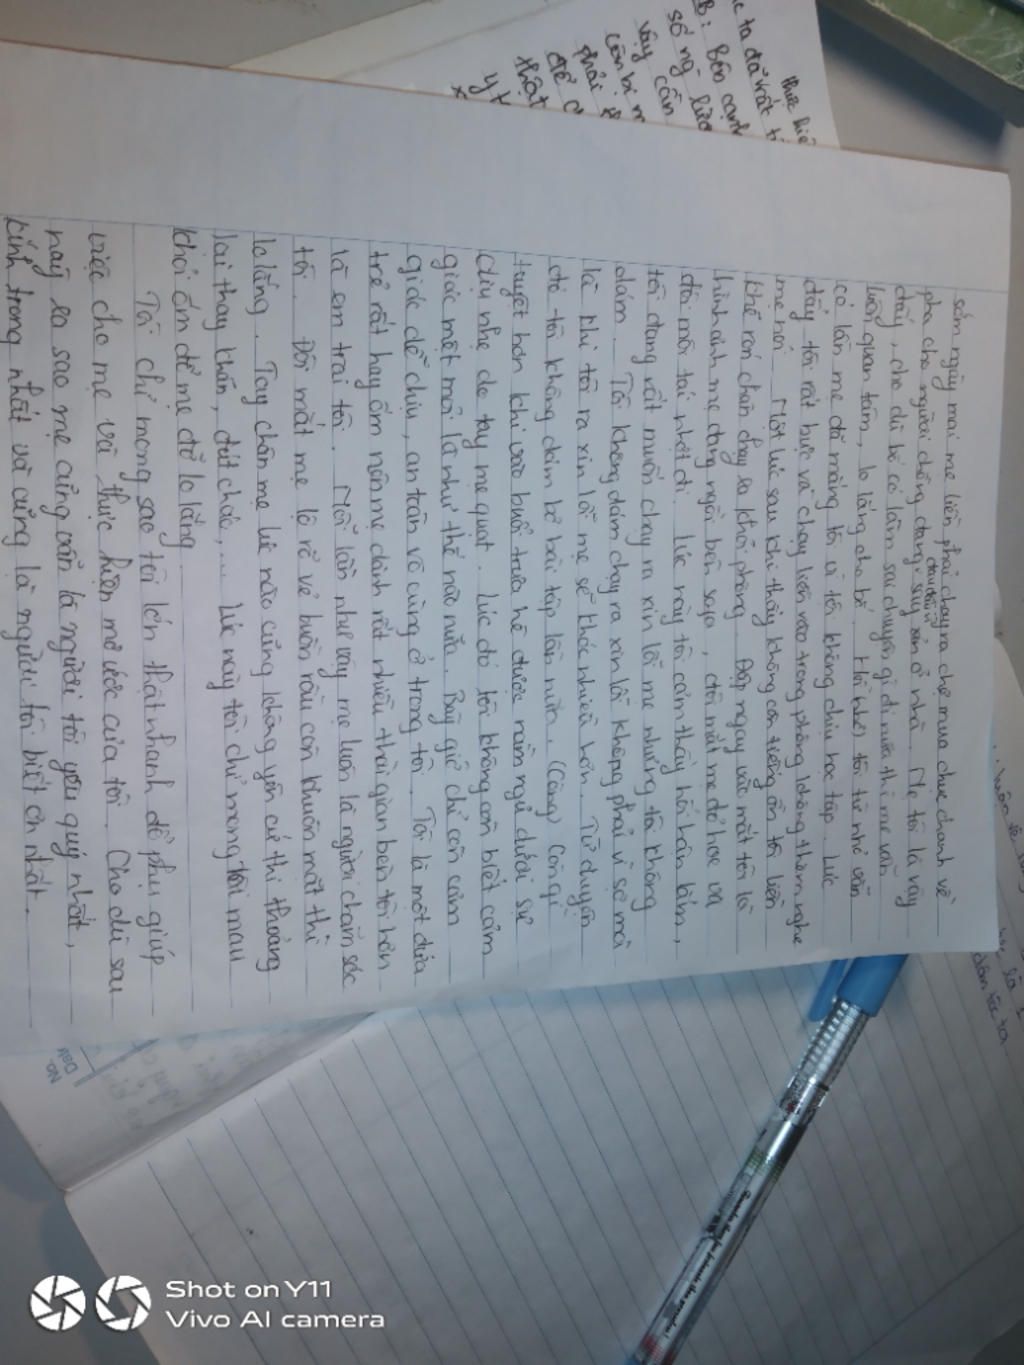 sớm ngày mai mẹ liền phải chạy ra chợ mua chục chanh về
pha cho người chồng đang say xỉn ở nhà. Mẹ tôi là vậy
đau đầu vì
đấy, cho dù bố có làm sai chuyện gì đi nữa thì mẹ vẫn
luôn quan tâm, lo lắng cho bố. Hồi nhỏ, tôi từ nhỏ vẫn
có lần mẹ đã mắng tôi vì tôi không chịu học tập. Lúc
đấy tôi rất bực và chạy liền vào trong phòng không thèm nghe
mẹ nói. Một lúc sau khi thấy không còn tiếng ồn tôi liền
khẽ rón chân chạy ra khỏi phòng. Đập ngay vào mắt tôi là
hình ảnh mẹ đang ngồi bên sopa, đôi mắt mẹ đỏ hoe và
đôi môi tái nhợt đi. Lúc này tôi cảm thấy hối hận lắm,
tôi đang rất muốn chạy ra xin lỗi mẹ nhưng tôi không
dám. Tôi không dám chạy ra xin lỗi không phải vì sợ mà
là khi tôi ra xin lỗi mẹ sẽ khóc nhiều hơn. Từ chuyện
đó tôi không dám bỏ bài tập lần nữa. (Còng) Còn gì
tuyệt hơn khi vào buổi trưa hè được nằm ngủ dưới sự
dịu nhẹ do tay mẹ quạt. Lúc đó tôi không còn biết cảm
giác mệt mỏi là như thế nào nữa. Bây giờ chỉ còn cảm
giác dễ chịu, an toàn vô cùng ở trong tôi. Tôi là một đứa
trẻ rất hay ốm nên mẹ dành rất nhiều thời gian bên tôi hơn
là em trai tôi. Mỗi lần như vậy mẹ luôn là người chăm sóc
tôi. Đôi mắt mẹ lộ rõ vẻ buồn rầu còn khuôn mặt thì
lo lắng. Tay chân mẹ lúc nào cũng không yên cứ thi thoảng
lại thay khăn, đút cháo,... Lúc này tôi chỉ mong tôi mau
khỏi ốm để mẹ đỡ lo lắng
Tôi chỉ mong sao tôi lớn thật nhanh để phụ giúp
việc cho mẹ và thực hiện mơ ước của tôi. Cho dù sau
này ra sao mẹ cũng vẫn là người tôi yêu quý nhất,
kính trọng nhất và cũng là người tôi biết ơn nhất.
ta đã rất
thức hiể
B: Bên cạnh
số ng
vậy cần
còn bị
phải
để
thật
No.
Date
là
dân tộc ta.
Shot on Y11
Vivo AI camera